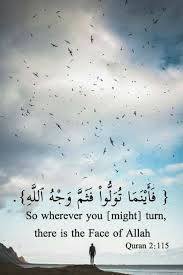 { فَأَيْنَمَا تُوَلُّوا۟ فَثَمَّ وَجْهُ ٱللَّهِ }.
So wherever you [might] turn,
there is the Face of Allah
Quran 2:115